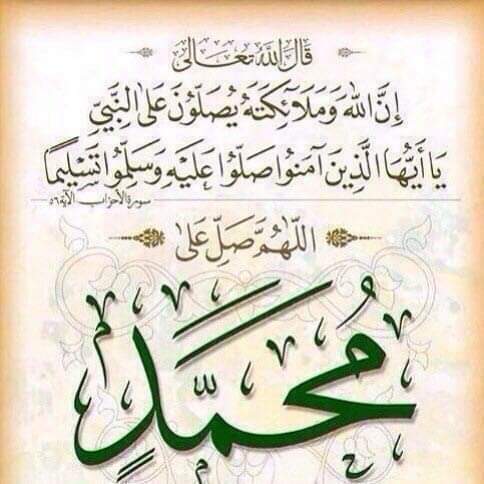 قَالَ اللَّهُ تَعَالَى
إِنَّ اللَّهَ وَمَلَائِكَتَهُ يُصَلُّونَ عَلَى النَّبِيِّ
يَا أَيُّهَا الَّذِينَ آمَنُوا صَلُّوا عَلَيْهِ وَسَلِّمُوا تَسْلِيمًا
سورة الأحزاب الآية ٥٦
اللَّهُمَّ صَلِّ عَلَى
مُحَمَّدٍ